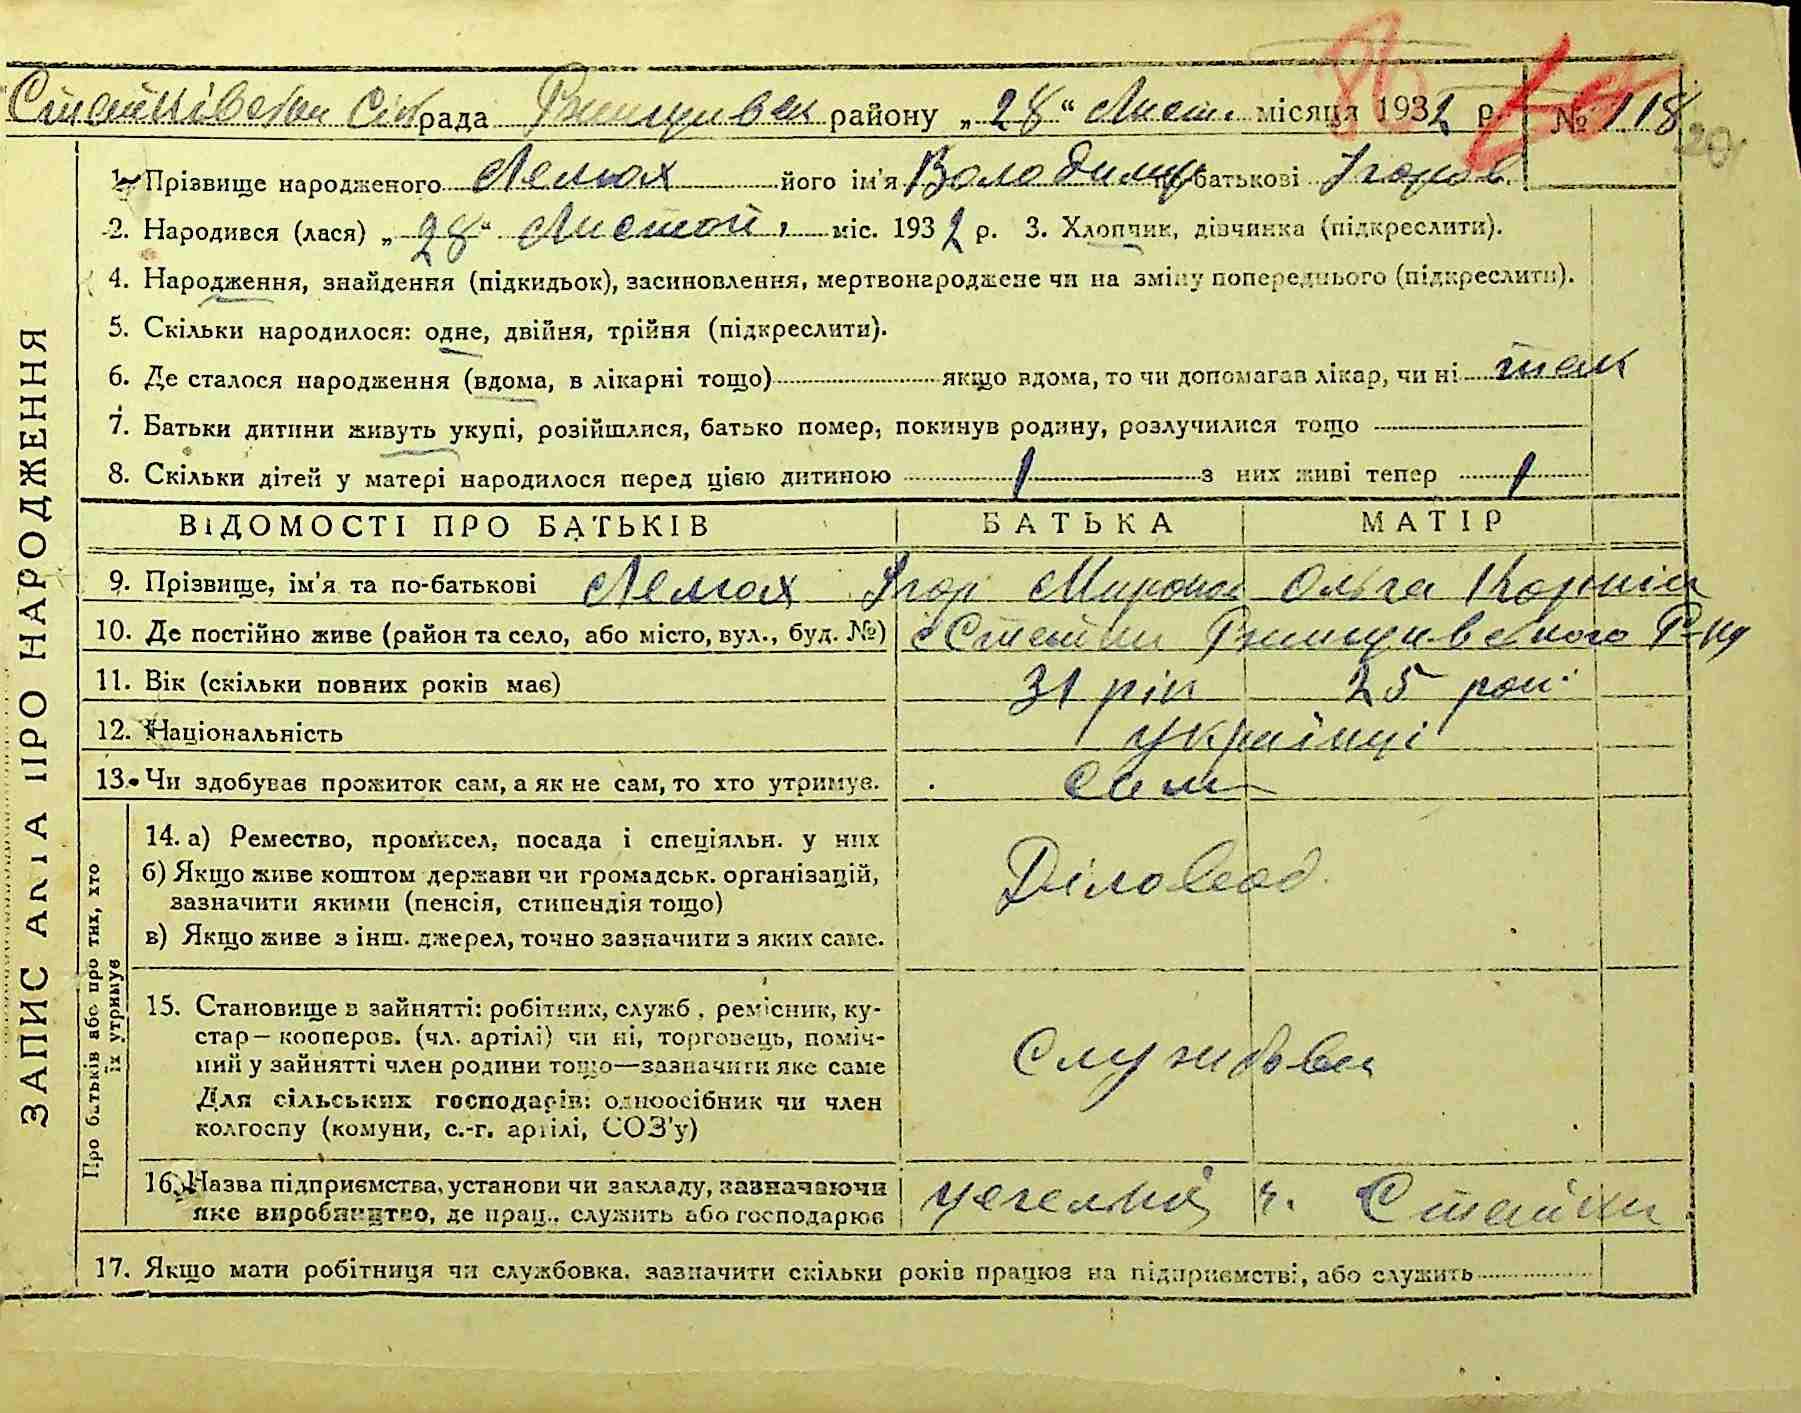 Стайківська Сільрада Ржищівськ району „28“ Лист. місяця 1932 р. № 118
86
20
1. Прізвище народженого Лемах його ім'я Володимир по-батькові Ігоров.
2. Народився (лася) „28“ Листоп. міс. 1932 р. 3. Хлопчик, дівчинка (підкреслити).
4. Народження, знайдення (підкидьок), засиновлення, мертвонароджене чи на зміну попереднього (підкреслити).
5. Скільки народилося: одне, двійня, трійня (підкреслити).
6. Де сталося народження (вдома, в лікарні тощо) якщо вдома, то чи допомагав лікар, чи ні так
7. Батьки дитини живуть укупі, розійшлися, батько помер, покинув родину, розлучилися тощо
8. Скільки дітей у матері народилося перед цією дитиною 1 з них живі тепер 1
ВІДОМОСТІ ПРО БАТЬКІВ БАТЬКА МАТІР
9. Прізвище, ім'я та по-батькові Лемах Ігор Миронов Ольга Корніїв
10. Де постійно живе (район та село, або місто, вул., буд. №) с Стайки Ржищивського Р-ну
11. Вік (скільки повних років має) 31 рік 25 рок.
12. Національність українці
13. Чи здобуває прожиток сам, а як не сам, то хто утримує. сам
14. а) Ремество, промисел, посада і спеціяльн. у них
б) Якщо живе коштом держави чи громадськ. організацій,
зазначити якими (пенсія, стипендія тощо)
Діловод.
в) Якщо живе з інш. джерел, точно зазначити з яких саме.
15. Становище в зайнятті: робітник, служб., ремісник, ку-
стар — кооперов. (чл. артілі) чи ні, торговець, поміч-
ний у зайнятті член родини тощо—зазначити яке саме
Службов
Для сільських господарів: одноосібник чи член
колгоспу (комуни, с.-г. артілі, СОЗ'у)
16. Назва підприємства, установи чи закладу, зазначаючи
яке виробництво, де прац., служить або господарює
цегельня Стайки
17. Якщо мати робітниця чи службовка, зазначити скільки років працює на підприємстві, або служить
ЗАПИС АКТА ПРО НАРОДЖЕННЯ
Про батьків або про тих, хто
їх утримує